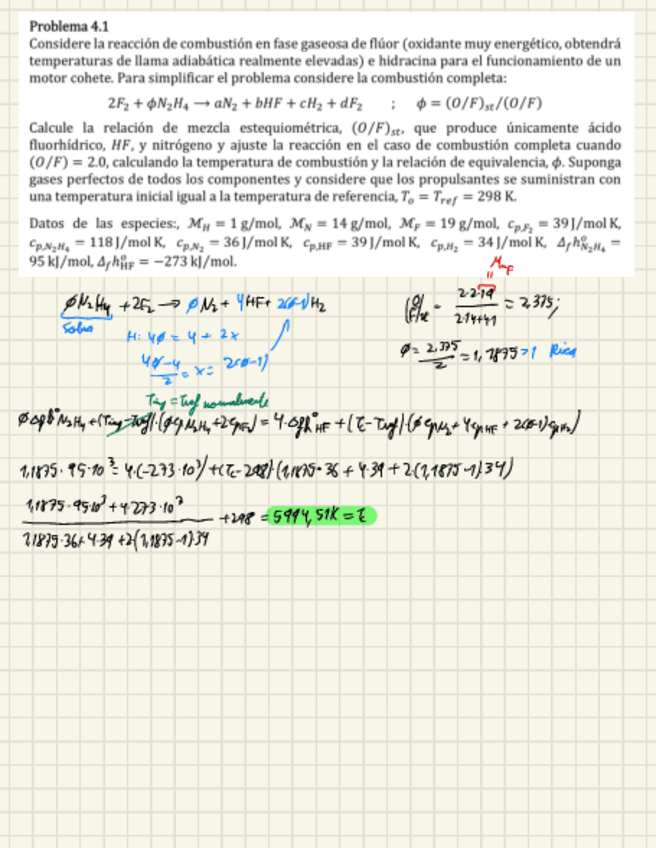 Problema 4.1
Considere la reacción de combustión en fase gaseosa de flúor (oxidante muy energético, obtendrá
temperaturas de llama adiabática realmente elevadas) e hidracina para el funcionamiento de un
motor cohete. Para simplificar el problema considere la combustión completa:
2F₂ + ϕN₂H₄ → aN₂ + bHF + cH₂ + dF₂ ; ϕ = (O/F)st/(O/F)
Calcule la relación de mezcla estequiométrica, (O/F)st, que produce únicamente ácido
fluorhídrico, HF, y nitrógeno y ajuste la reacción en el caso de combustión completa cuando
(O/F) = 2.0, calculando la temperatura de combustión y la relación de equivalencia, ϕ. Suponga
gases perfectos de todos los componentes y considere que los propulsantes se suministran con
una temperatura inicial igual a la temperatura de referencia, Tₒ = T_ref = 298 K.
Datos de las especies:, M_H = 1 g/mol, M_N = 14 g/mol, M_F = 19 g/mol, c_p,F₂ = 39 J/mol K,
c_p,N₂H₄ = 118 J/mol K, c_p,N₂ = 36 J/mol K, c_p,HF = 39 J/mol K, c_p,H₂ = 34 J/mol K, Δ_f h°_N₂H₄ =
95 kJ/mol, Δ_f h°_HF = −273 kJ/mol.
ϕN₂H₄ + 2F₂ → ϕN₂ + 4HF + 2(ϕ-1)H₂
Sobra
H: 4ϕ = 4 + 2x
(4ϕ-4)/2 = x = 2(ϕ-1)
(O/F)st = (2·2·19)/(2·14+4·1) = 2,375;
ϕ = 2,375/2 = 1,1875 > 1 Rica
Tiny = Tref normalmente
ϕΔfh°N₂H₄ + (Tiny-Tref)·(ϕCpN₂H₄+2CpF₂) = 4·Δfh°HF + (Tc-Tref)(ϕCpN₂+4CpHF+2(ϕ-1)CpH₂)
1,1875·95·10³ = 4·(-273·10³)+(Tc-298)·(1,1875·36+4·39+2(1,1875-1)34)
(1,1875·95·10³+4·273·10³)/(1,1875·36+4·39+2(1,1875-1)·34) +298 = 5994,51K = Tc